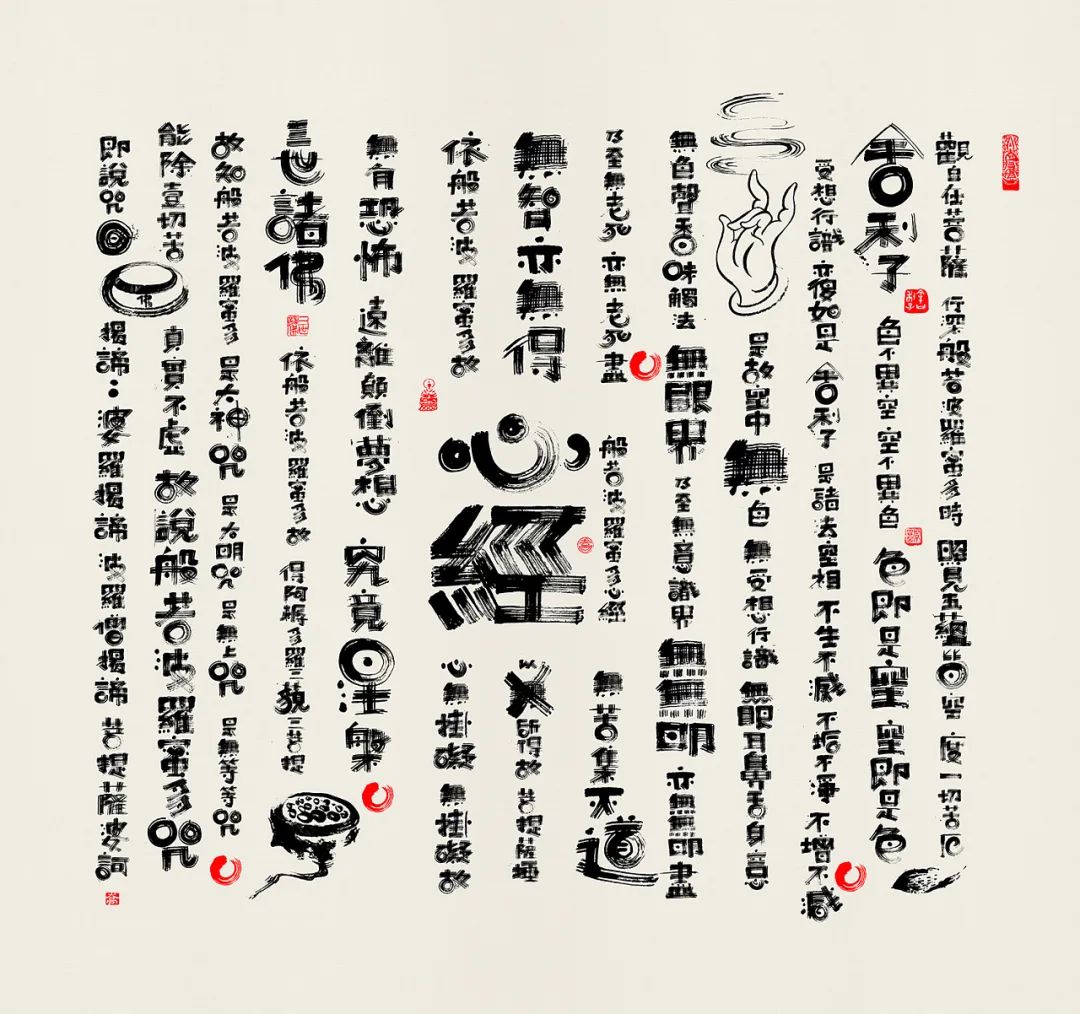 觀自在菩薩 行深般若波羅蜜多時 照見五蘊皆空 度一切苦厄
舍利子 色不異空 空不異色 色即是空 空即是色
受想行識 亦復如是 舍利子 是諸法空相 不生不滅 不垢不淨 不增不減
是故空中 無色 無受想行識 無眼耳鼻舌身意
無色聲香味觸法 無眼界 乃至無意識界 無無明 亦無無明盡
乃至無老死 亦無老死盡
般若波羅蜜多心經
無苦集滅道
無智亦無得
心經
以無所得故 菩提薩埵
依般若波羅蜜多故
心無掛礙 無掛礙故
無有恐怖 遠離顛倒夢想 究竟涅槃
三世諸佛 依般若波羅蜜多故 得阿耨多羅三藐三菩提
故知般若波羅蜜多 是大神咒 是大明咒 是無上咒 是無等等咒
能除壹切苦 真實不虛 故說般若波羅蜜多咒
即說咒曰
佛
揭諦：婆羅揭諦 波羅僧揭諦 菩提薩婆訶